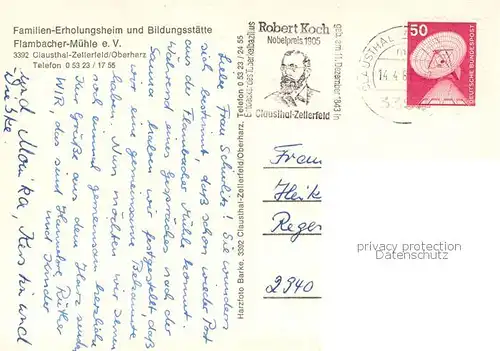 Familien-Erholungsheim und Bildungsstätte
Flambacher-Mühle e. V.
3392 Clausthal-Zellerfeld/Oberharz
Telefon 0 53 23 / 17 55
Liebe Frau ! Sie wundern
sich bestimmt, daß schon wieder Post
aus der Flambacher Mühle kommt.
Während eines Gespräches nach der
Sauna haben wir festgestellt daß
wir eine gemeinsame Bekannte
haben. Nun möchten wir Ihnen
noch einmal gemeinsam herzliche
Grüße aus dem Harz senden
WIR, das sind Hannelore
und Kinder
und Monika, Kerstin und
Harzfoto Barke, 3392 Clausthal-Zellerfeld/Oberharz, Telefon 0 53 23 / 24 55
Robert Koch
Nobelpreis 1905
Entdecker des Tuberkelbazillus
geb. am 11. Dezember 1843 in
Clausthal-Zellerfeld
CLAUSTHAL-
14.4.8
50
DEUTSCHE BUNDESPOST
Frau
Heik
Reger
2940
privacy protection
Datenschutz